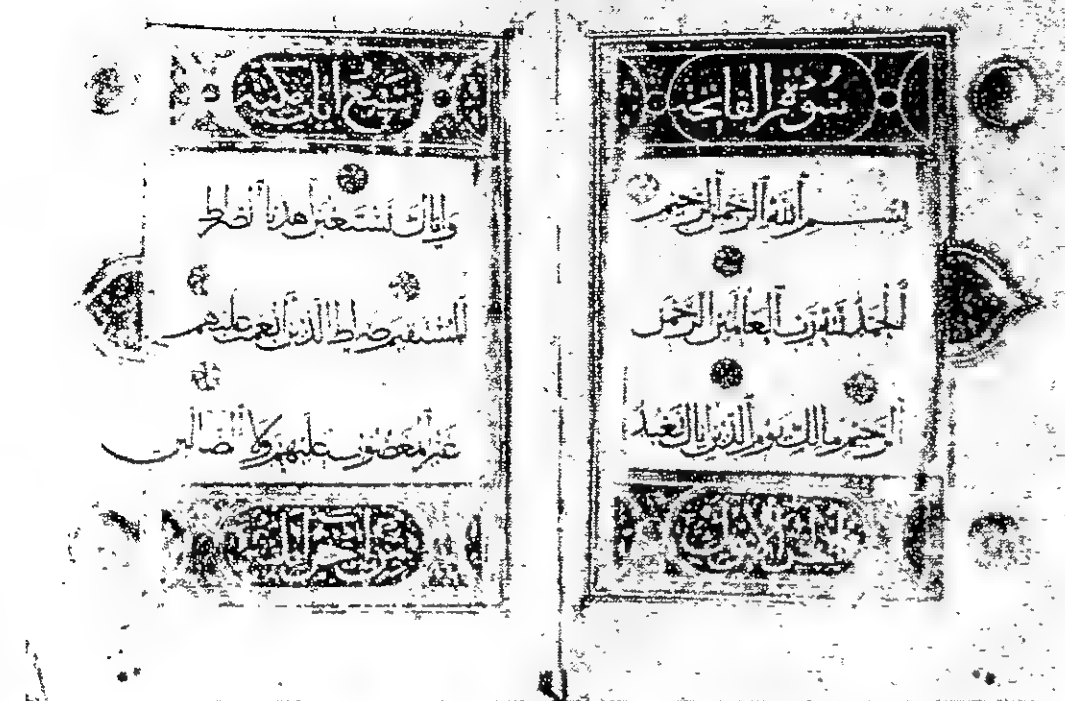 سورة الفاتحة
بسم الله الرحمن الرحيم
الحمد لله رب العالمين الرحمن
الرحيم مالك يوم الدين اياك نعبد
سبع ايات مكية
واياك نستعين اهدنا الصراط
المستقيم صراط الذين انعمت عليهم
غير المغضوب عليهم ولا الضالين